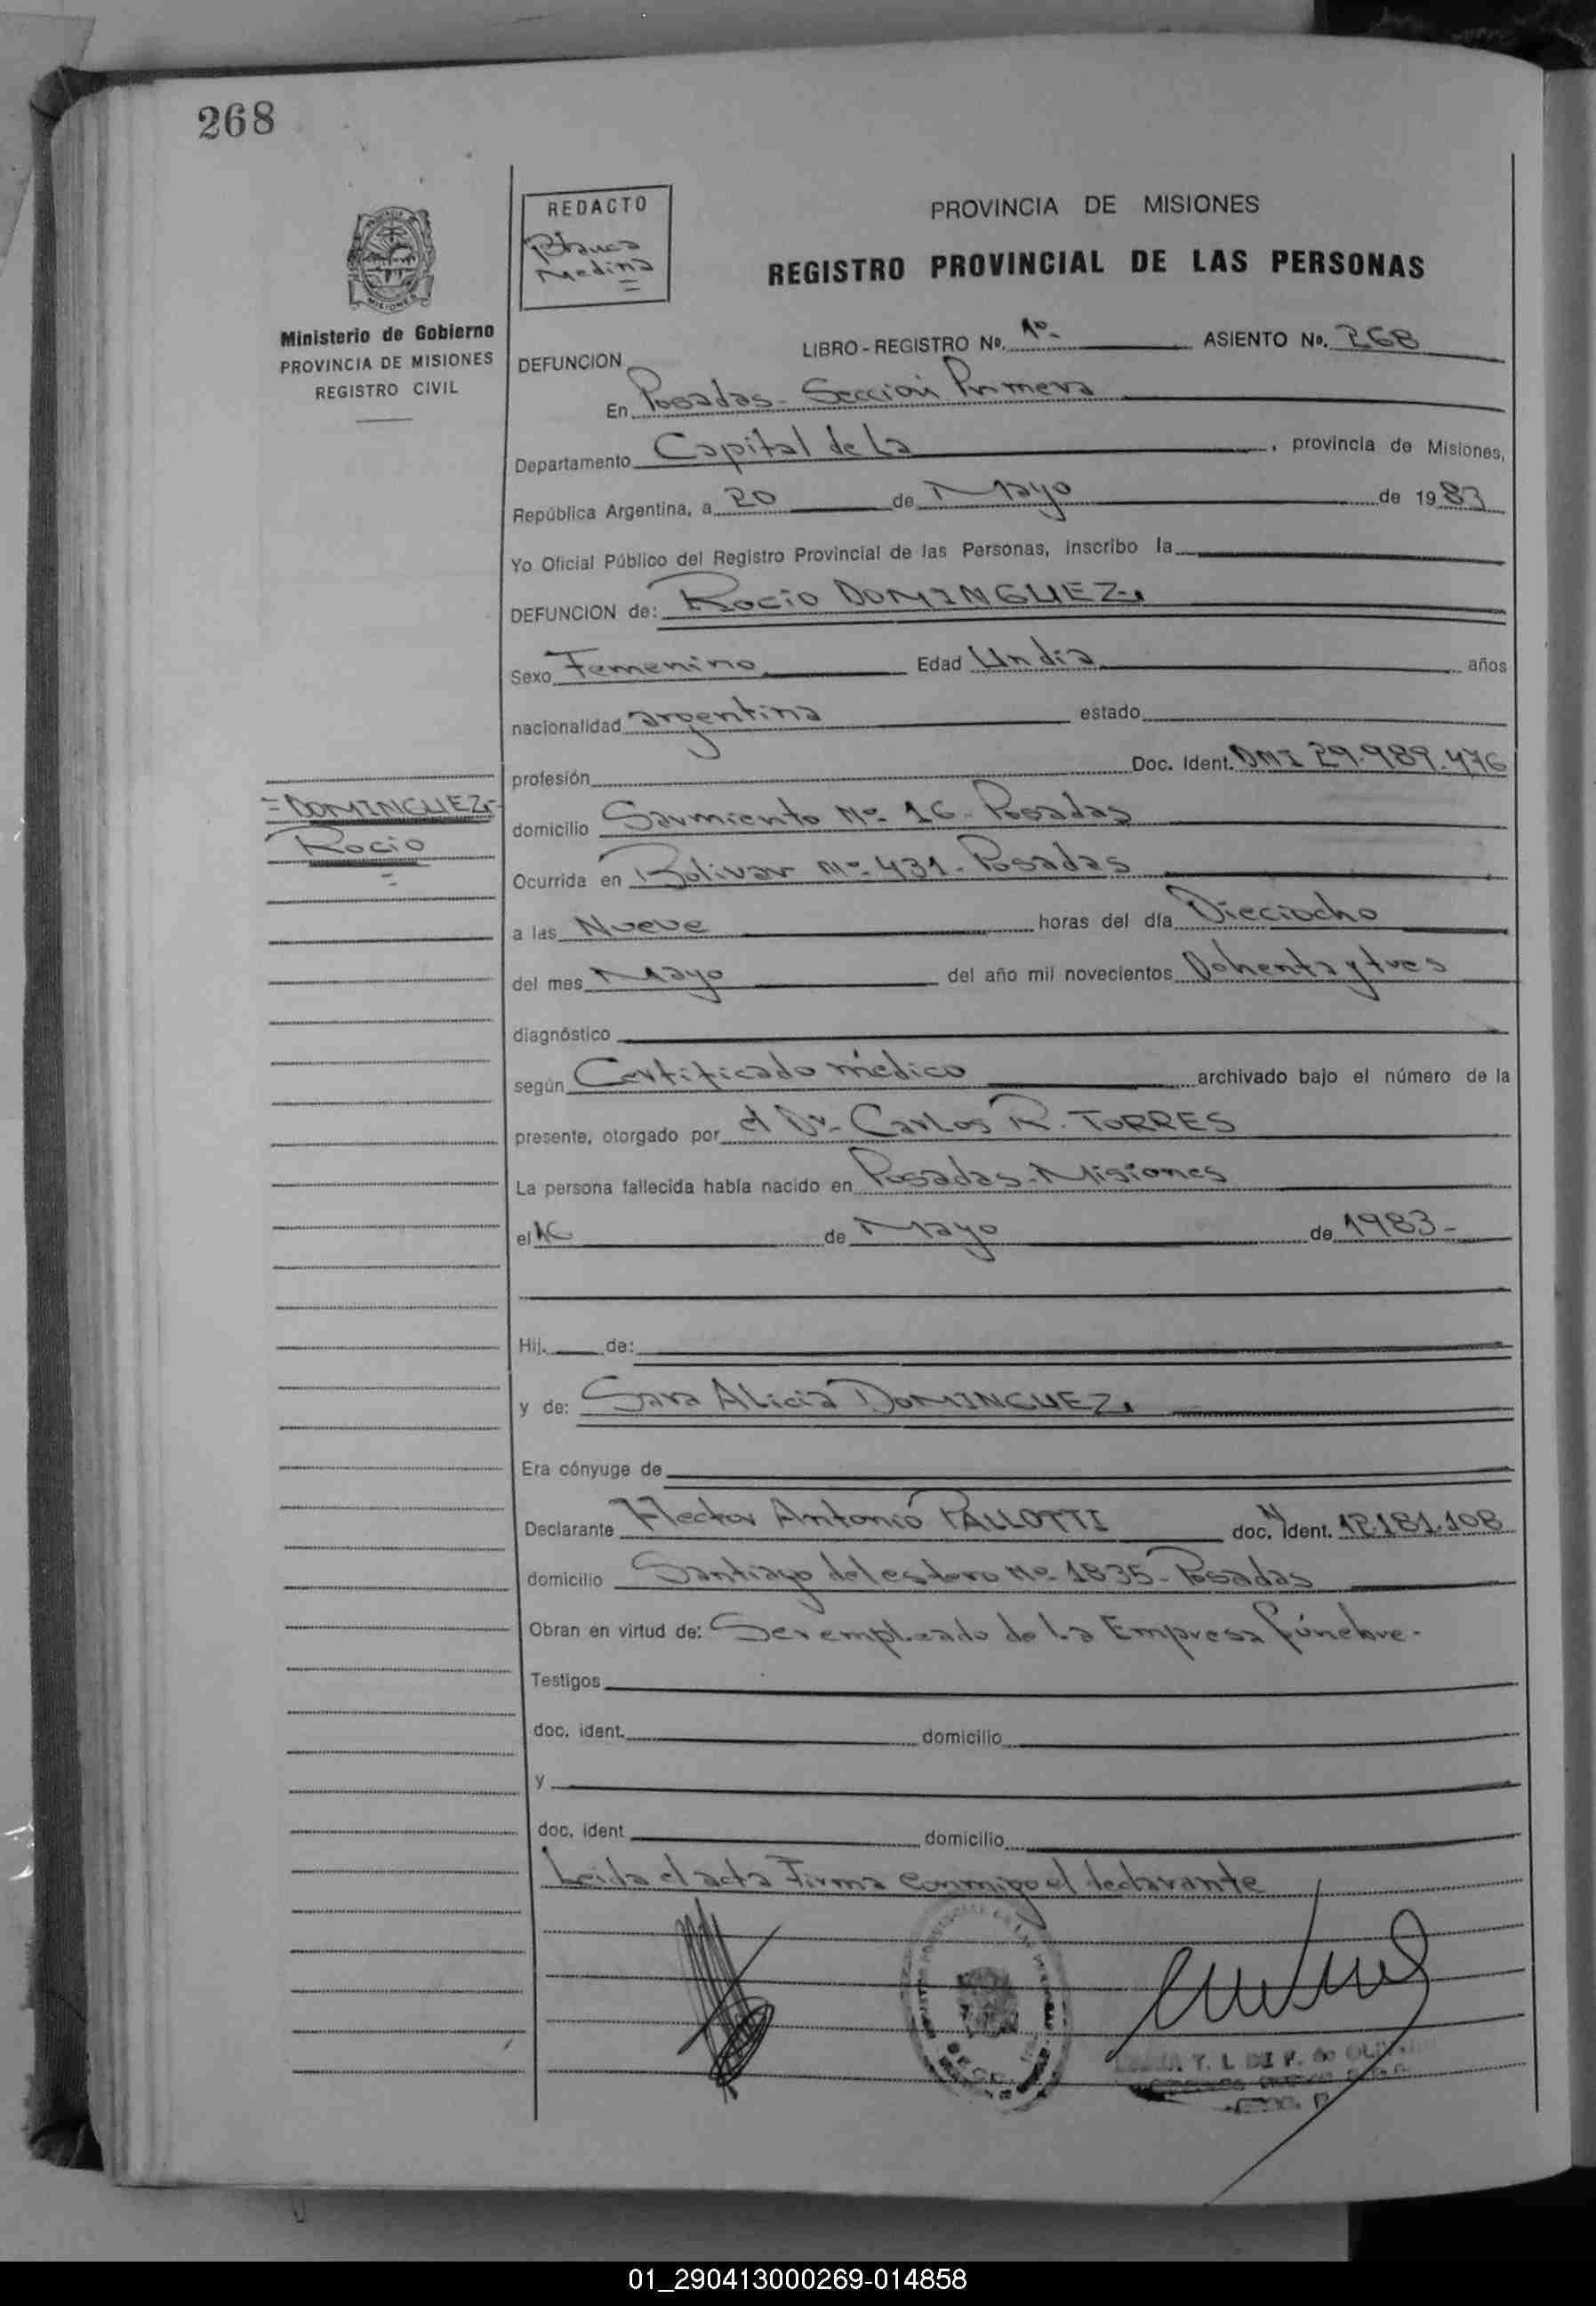 268
REDACTO
Blanca
Medina
PROVINCIA DE MISIONES
REGISTRO PROVINCIAL DE LAS PERSONAS
MISIONES
Ministerio de Gobierno
PROVINCIA DE MISIONES
REGISTRO CIVIL
LIBRO-REGISTRO Nº. 1º- ASIENTO Nº. 268
DEFUNCION
En Posadas - Sección Primera
Departamento Capital de La, provincia de Misiones,
República Argentina, a 20 de Mayo de 1983
Yo Oficial Público del Registro Provincial de las Personas, inscribo la
DEFUNCION de: Rocio DOMINGUEZ.
Sexo Femenino Edad Un día años
nacionalidad argentina estado
profesión Doc. Ident. DNI 29.989.476
=DOMINGUEZ=
Rocio
=
domicilio Sarmiento Nº 16 - Posadas
Ocurrida en Bolivar Nº 431 - Posadas
a las Nueve horas del día Dieciocho
del mes Mayo del año mil novecientos Oohenta y tres
diagnóstico
según Certificado médico archivado bajo el número de la
presente, otorgado por el Dr. Carlos R. TORRES
La persona fallecida había nacido en Posadas - Misiones
el 16 de Mayo de 1983-
Hij. de:
y de: Sara Alicia DOMINGUEZ.
Era cónyuge de
Declarante Hector Antonio PALLOTTI doc. ident. 12.181.108
domicilio Santiago del estero Nº 1835 - Posadas
Obran en virtud de: Ser empleado de La Empresa fúnebre-
Testigos
doc. ident. domicilio
y
doc. ident domicilio
Leida el acta Firma conmigo el declarante
01_290413000269-014858